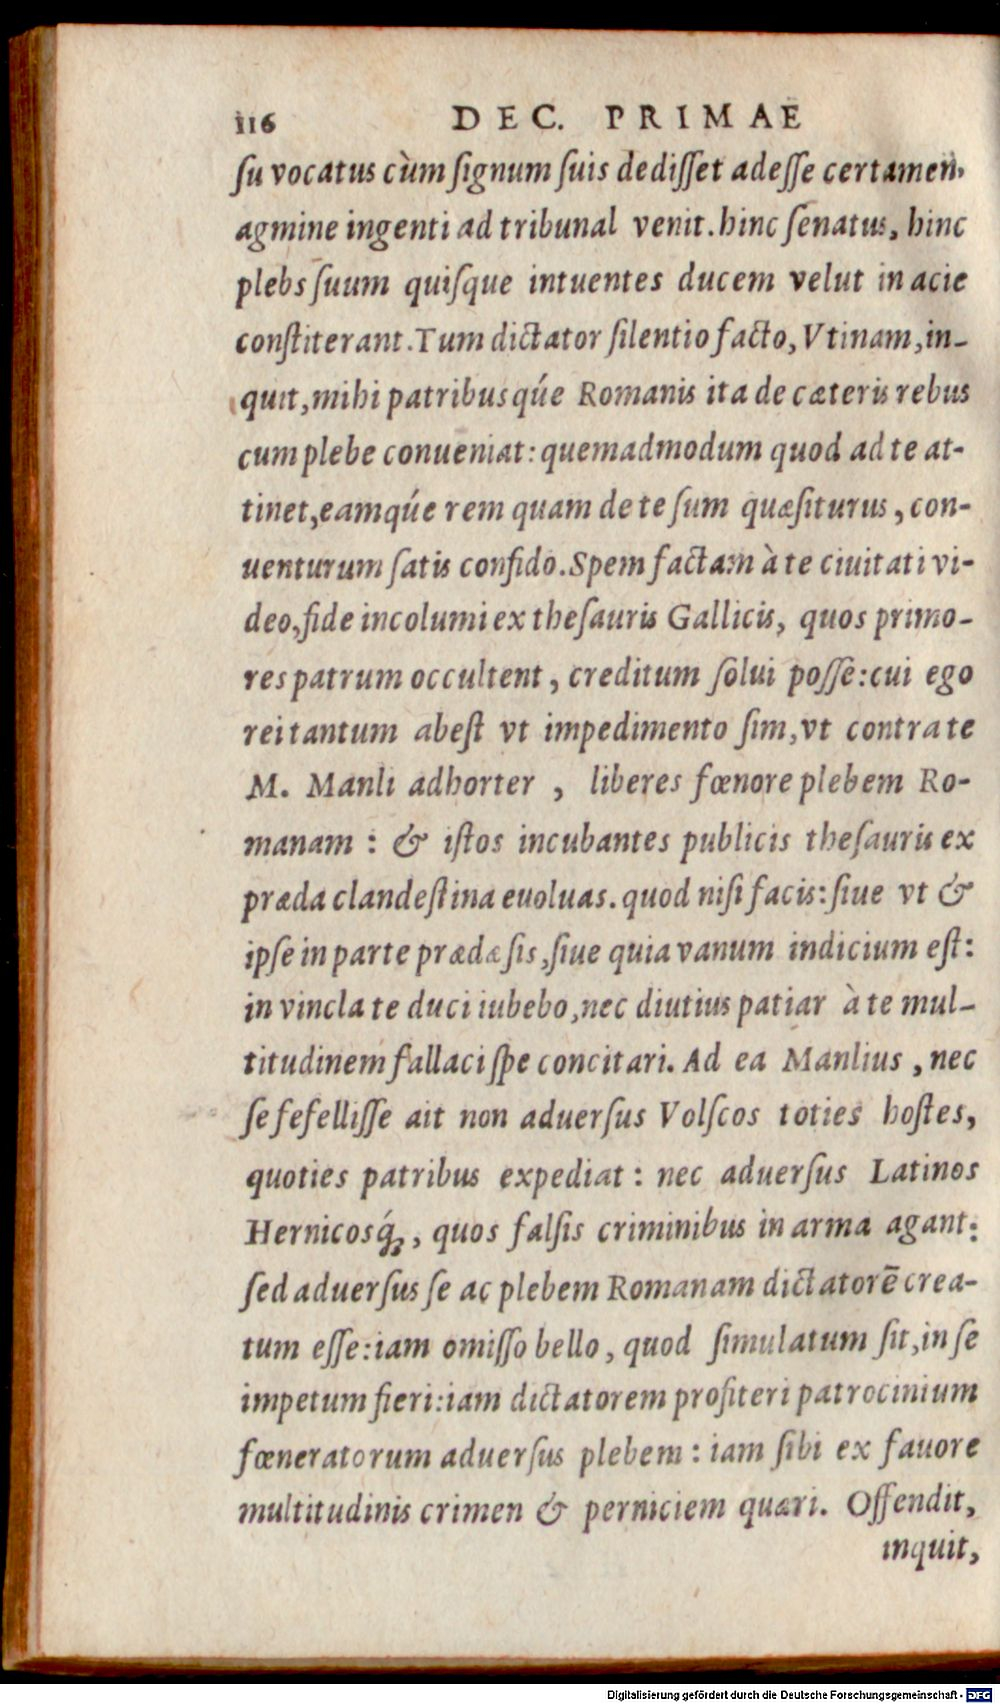 116 DEC. PRIMAE
ſu vocatus cùm ſignum ſuis dediſſet adeſſe certamen,
agmine ingenti ad tribunal venit. hinc ſenatus, hinc
plebs ſuum quiſque intuentes ducem velut in acie
conſtiterant. Tum dictator ſilentio facto, Vtinam, in-
quit, mihi patribusqúe Romanis ita de cæteris rebus
cum plebe conueniat: quemadmodum quod ad te at-
tinet, eamqúe rem quam de te ſum quæſiturus, con-
uenturum ſatis confido. Spem factam à te ciuitati vi-
deo, fide incolumi ex theſauris Gallicis, quos primo-
res patrum occultent, creditum ſolui poſſe: cui ego
rei tantum abeſt vt impedimento ſim, vt contra te
M. Manli adhorter, liberes fœnore plebem Ro-
manam: & iſtos incubantes publicis theſauris ex
præda clandeſtina euoluas. quod niſi facis: ſiue vt &
ipſe in parte prædæ ſis, ſiue quia vanum indicium eſt:
in vincla te duci iubebo, nec diutius patiar à te mul-
titudinem fallaci ſpe concitari. Ad ea Manlius, nec
ſe fefelliſſe ait non aduerſus Volſcos toties hoſtes,
quoties patribus expediat: nec aduerſus Latinos
Hernicosq́;, quos falſis criminibus in arma agant:
ſed aduerſus ſe ac plebem Romanam dictatorē crea-
tum eſſe: iam omiſſo bello, quod ſimulatum ſit, in ſe
impetum fieri: iam dictatorem profiteri patrocinium
fœneratorum aduerſus plebem: iam ſibi ex fauore
multitudinis crimen & perniciem quæri. Offendit,
inquit,
Digitalisierung gefördert durch die Deutsche Forschungsgemeinschaft - DFG